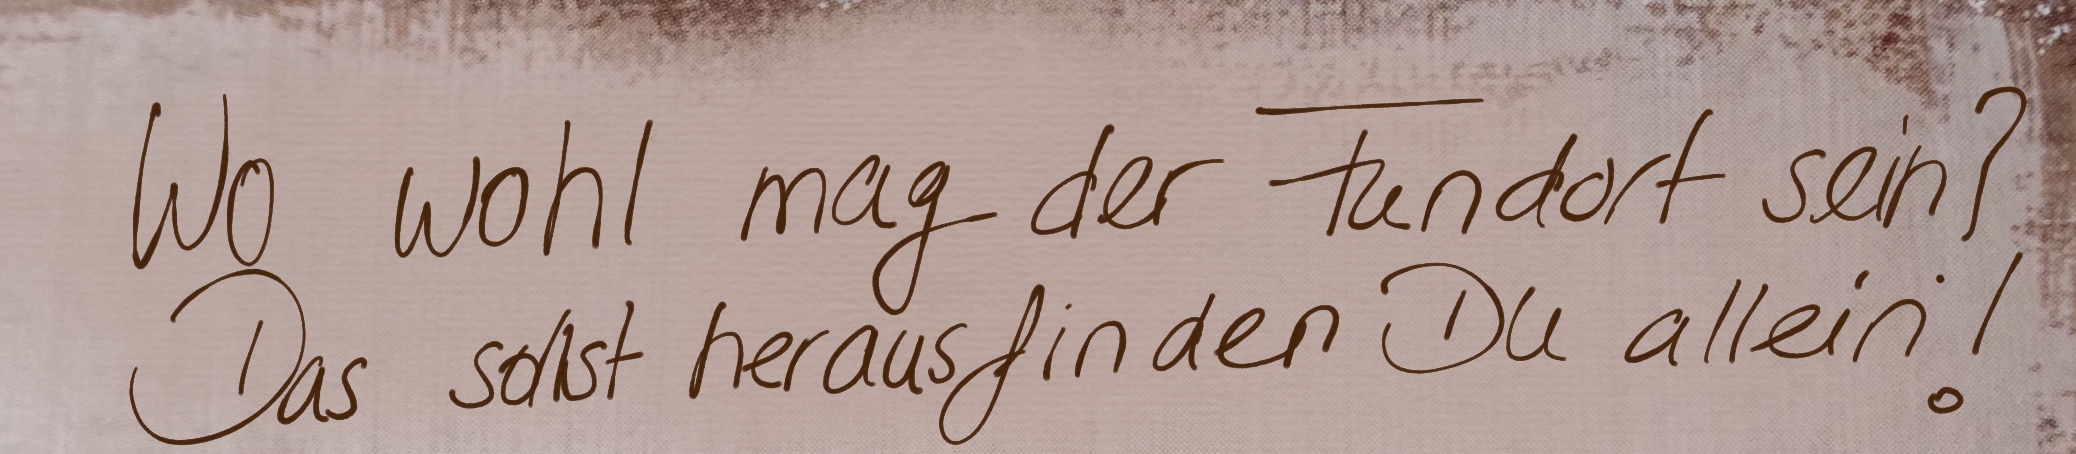 Wo wohl mag der Fundort sein?
Das sollst herausfinden Du allein!